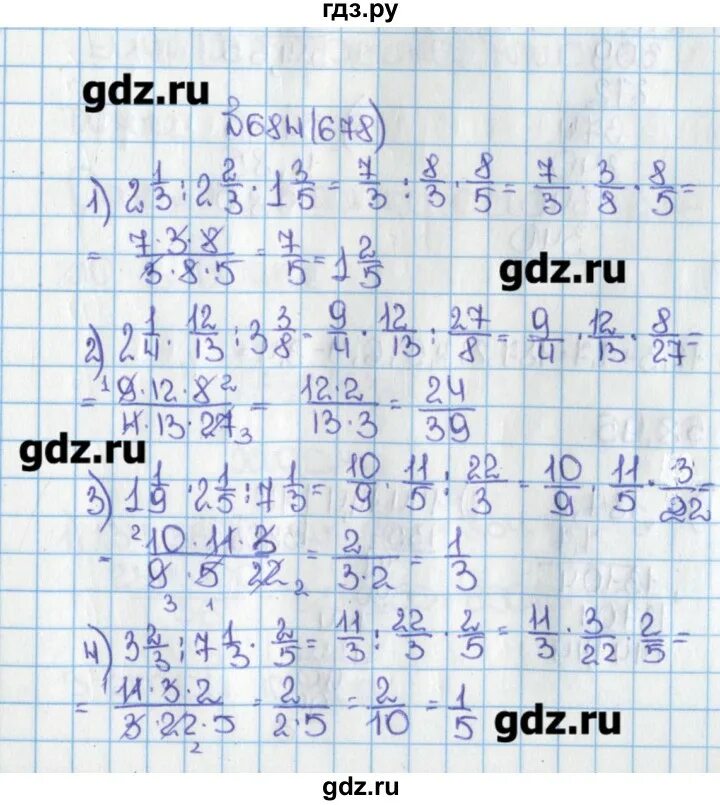 гдз.ру
gdz.ru
№684(678)
1) 2 1/3 : 2 2/3 · 1 3/5 = 7/3 : 8/3 · 8/5 = 7/3 · 3/8 · 8/5 =
= 7·3·8/3·8·5 = 7/5 = 1 2/5
gdz.ru
2) 2 1/4 · 12/13 : 3 3/8 = 9/4 · 12/13 : 27/8 = 9/4 · 12/13 · 8/27 =
= 1 9·12·8 2/4·13·27 3 = 12·2/13·3 = 24/39
gdz.ru
3) 1 1/9 · 2 1/5 : 7 1/3 = 10/9 · 11/5 : 22/3 = 10/9 · 11/5 · 3/22 =
= 2 10·11·3/9·5 22 2 = 2/3·2 = 1/3
3 1
4) 3 2/3 : 7 1/3 · 2/5 = 11/3 : 22/3 · 2/5 = 11/3 · 3/22 · 2/5 =
= 1 11·3·2/3·22·5 = 2/2·5 = 2/10 = 1/5
2
gdz.ru
gdz.ru